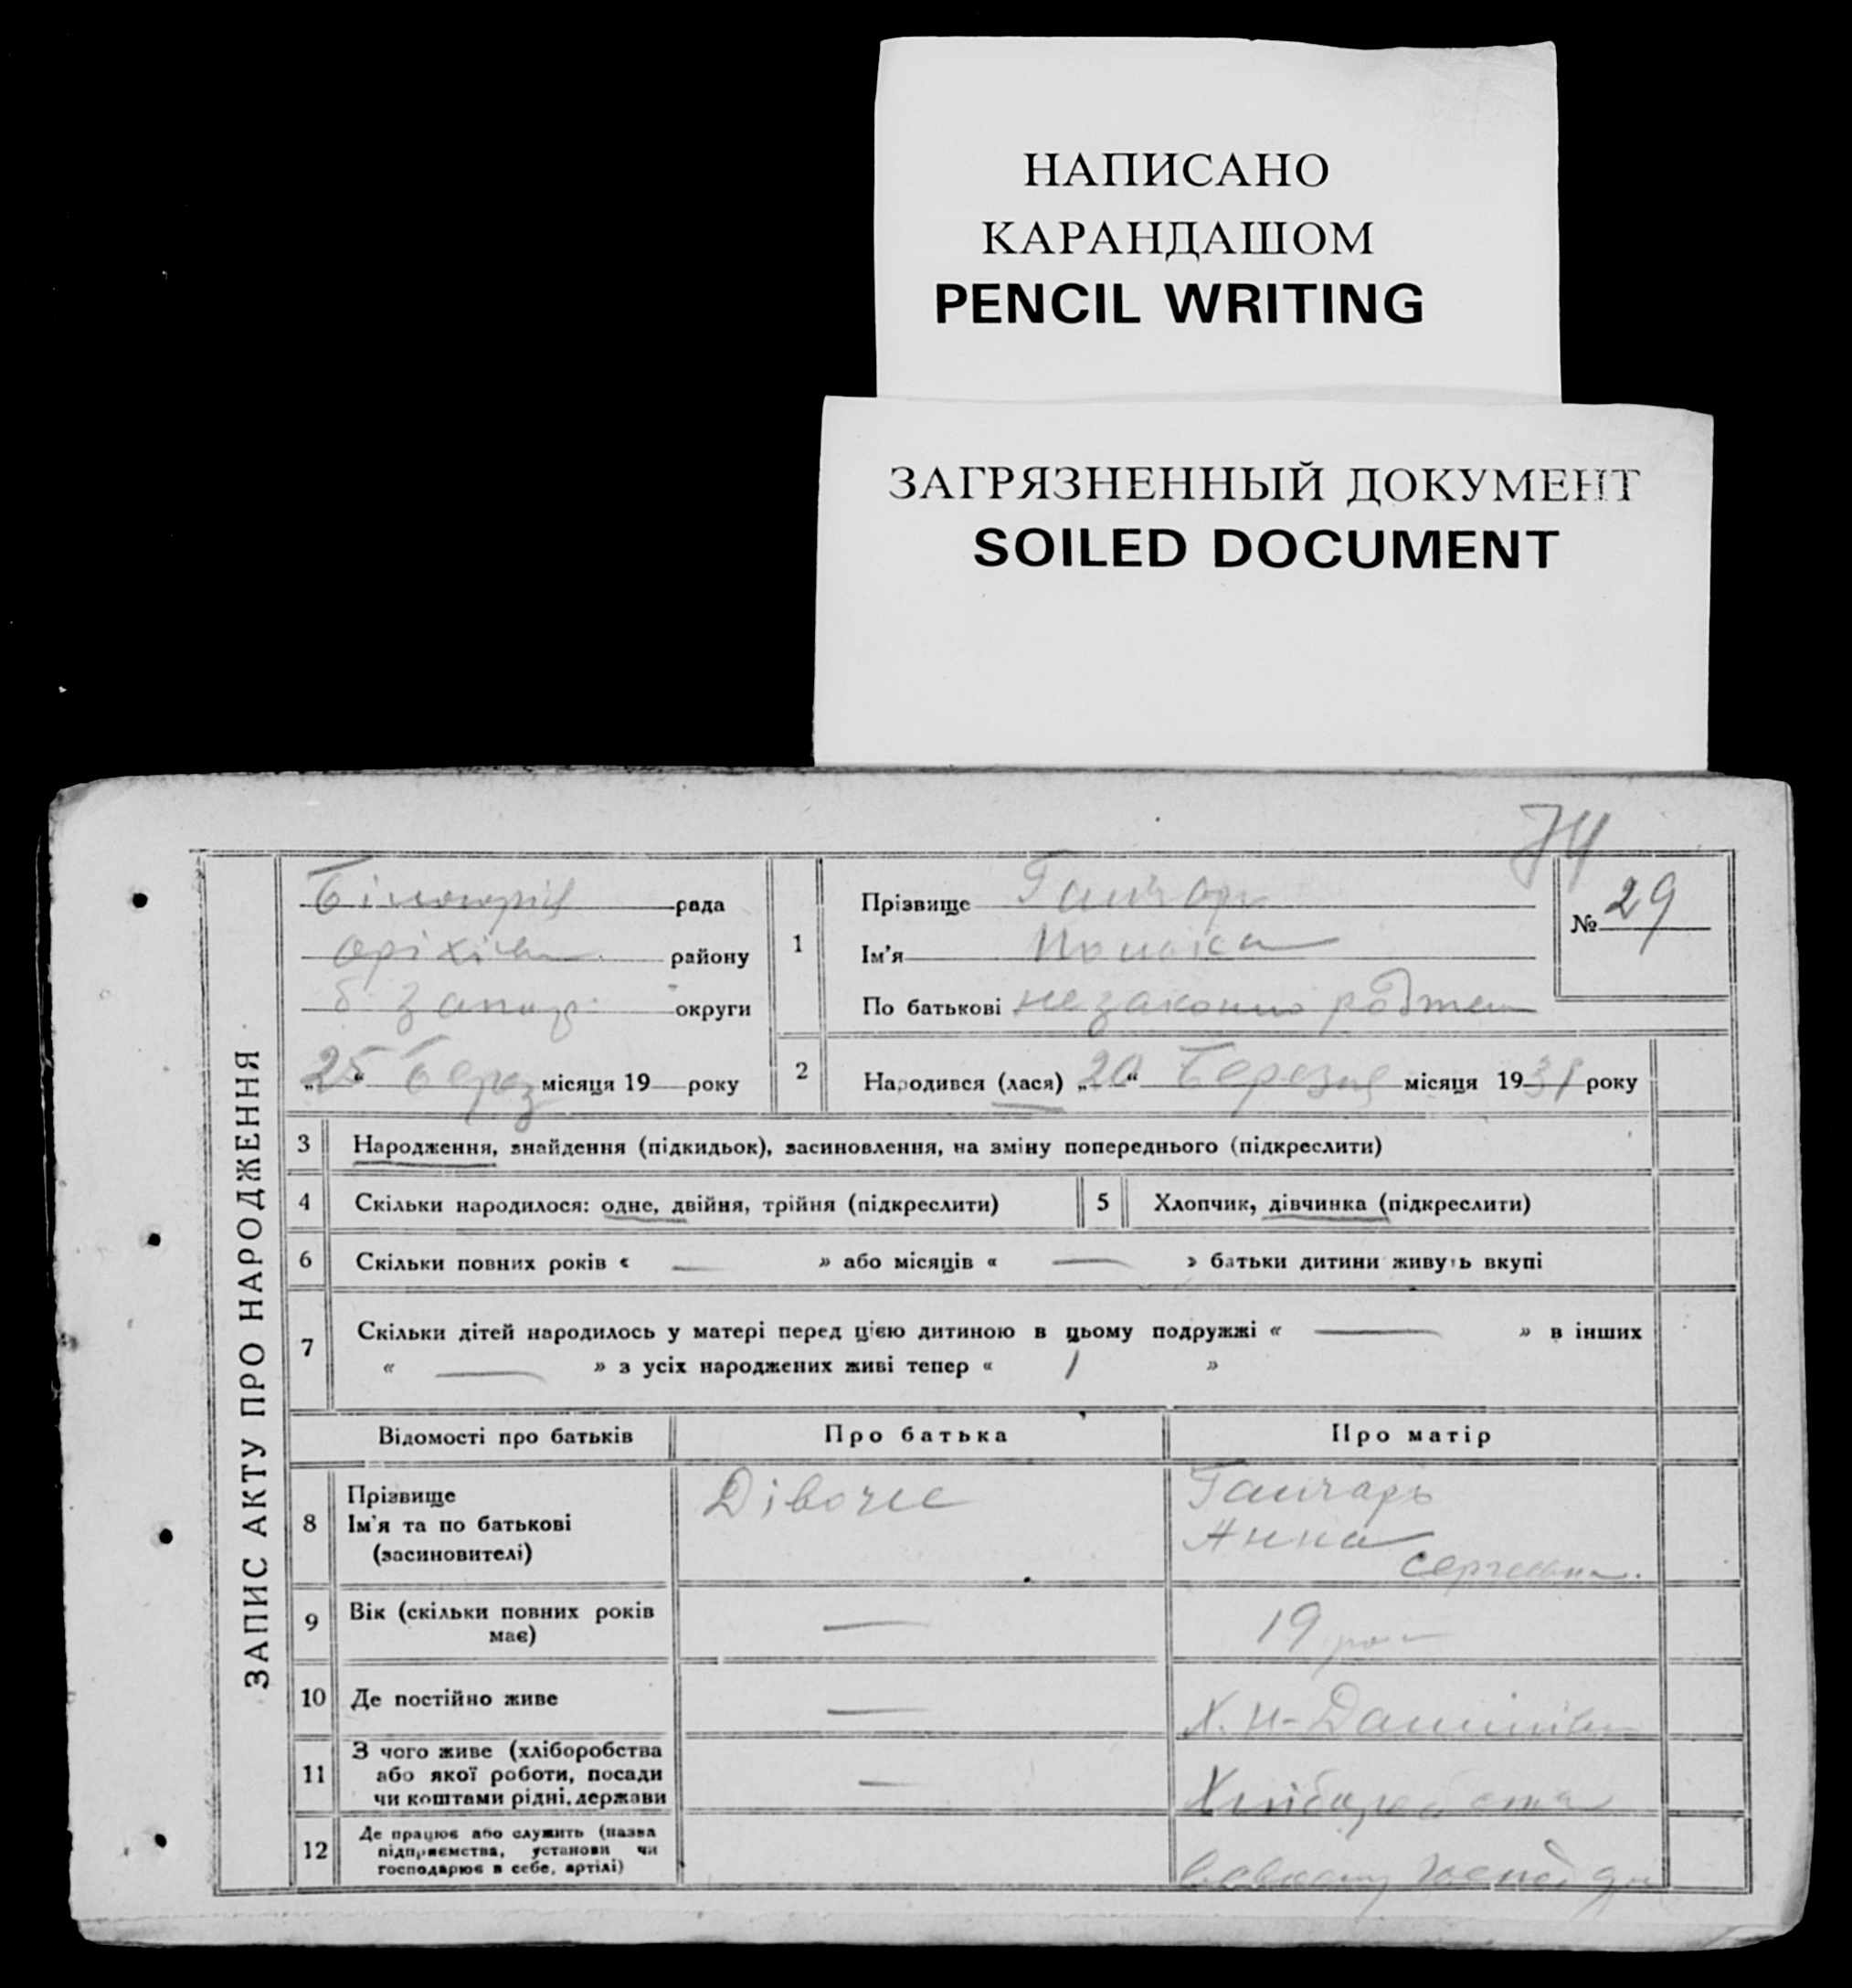 НАПИСАНО
КАРАНДАШОМ
PENCIL WRITING
ЗАГРЯЗНЕННЫЙ ДОКУМЕНТ
SOILED DOCUMENT
74
ЗАПИС АКТУ ПРО НАРОДЖЕННЯ
рада
району
округи
„25“ Берез місяця 19 року
1
Прізвище
Ім'я
По батькові незаконно
№ 29
2
Народився (лася) „20“ Березня місяця 1931 року
3 Народження, знайдення (підкидьок), засиновлення, на зміну попереднього (підкреслити)
4 Скільки народилося: одне, двійня, трійня (підкреслити)
5 Хлопчик, дівчинка (підкреслити)
6 Скільки повних років « — » або місяців « — » батьки дитини живуть вкупі
7 Скільки дітей народилось у матері перед цією дитиною в цьому подружжі « — » в інших
« — » з усіх народжених живі тепер « 1 »
Відомості про батьків
Про батька
Про матір
8
Прізвище
Ім'я та по батькові
(засиновителі)
Дівоче
Ганчарь
Анна
9
Вік (скільки повних років
має)
—
19
10 Де постійно живе
—
11
З чого живе (хліборобства
або якої роботи, посади
чи коштами рідні, держави
—
12
Де працює або служить (назва
підприємства, установи чи
господарює в себе, артілі)